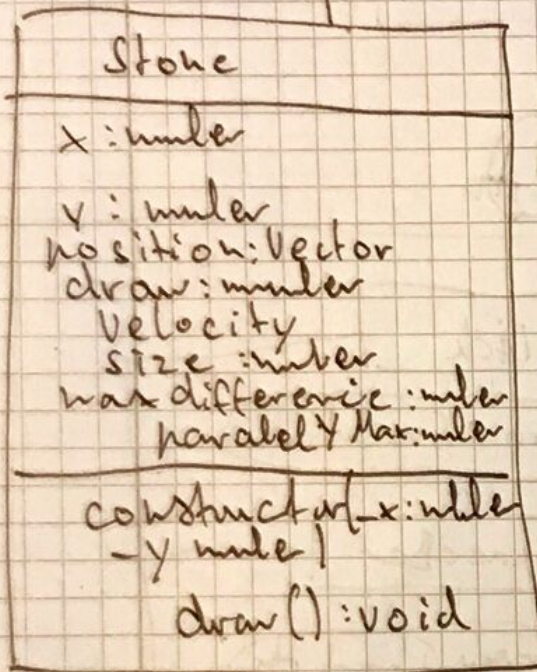 Stone
x : number
y : number
position: Vector
draw: number
Velocity
size : number
maxdifference : number
paralelYMax: number
constructor(_x: number
_y number)
draw() : void